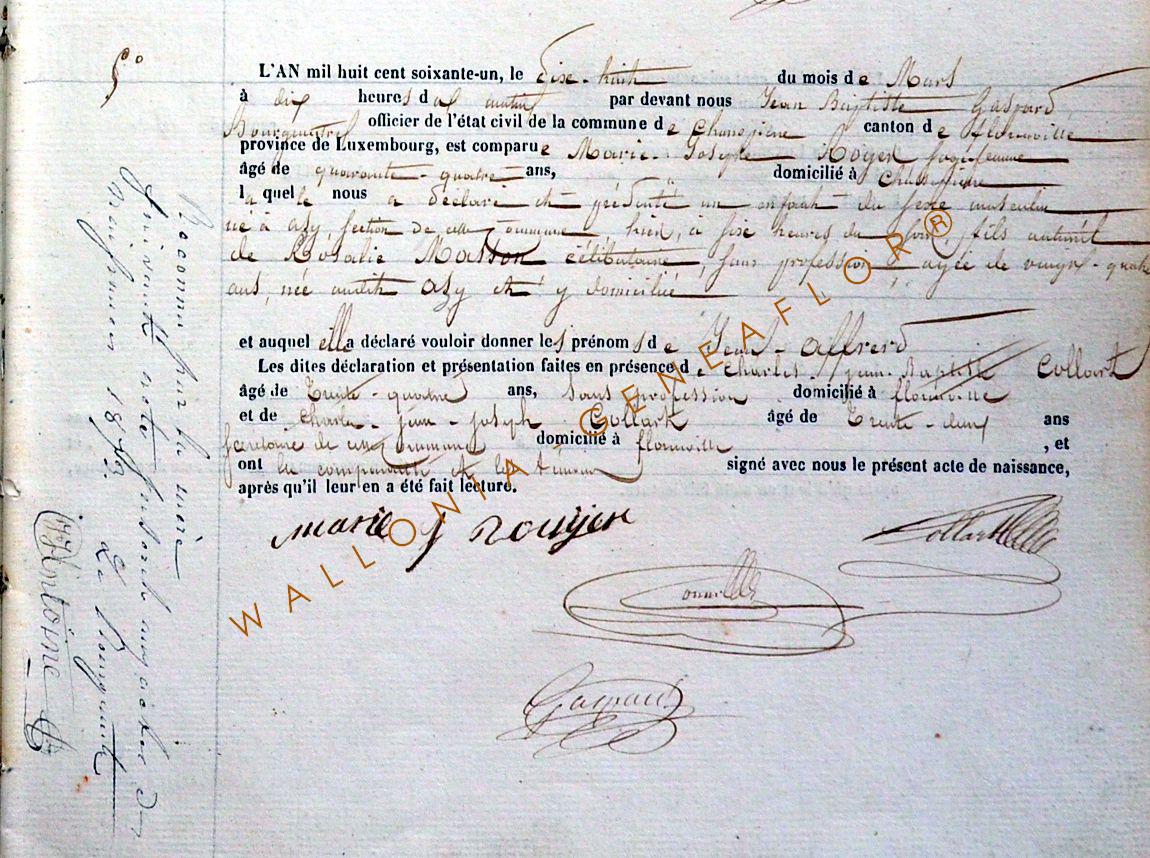 5°
L'AN mil huit cent soixante-un, le dix-huit du mois de Mars
à dix heures du matin par devant nous Jean Baptiste Gaspard,
Bourgmestre officier de l'état civil de la commune de canton de florenville
province de Luxembourg, est comparue Marie-Josephe Royer sagefemme
âgé de quarante-quatre ans, domicilié à
laquelle nous a déclaré et présenté un enfant du sexe masculin
né à azy, section de cette Commune hier, à six heures du soir, fils naturel
de Rosalie Masson célibataire, sans profession, agée de vingt-quatre
ans, née audit azy et y domicilié
et auquel elle a déclaré vouloir donner les prénoms de Jean-
Les dites déclaration et présentation faites en présence de Charles jean-Baptiste Collart
âgé de Trente-quatre ans, sans profession domicilié à florenville
et de Charles-jean-joseph Collart âgé de Trente-deux ans
de cette Commune domicilié à florenville, et
ont la comparante et les témoins signé avec nous le présent acte de naissance,
après qu'il leur en a été fait lecture.
marie j rouyer
Collart
Gaspard
Reconnu par la mère
suivant acte
1873. Le Bourgmestre
Antoine
WALLONIA-GENEAFLOR®